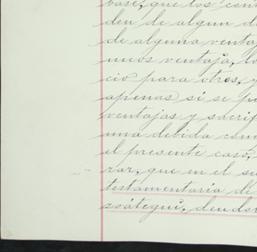 base, que los con
den de algun d
de alguna venta
unos ventaja, lo
cio para otros, y
apenas si se pu
ventajas y sacrif
una debida com
el presente caso,
rar, que en el su
testamentaria de
zoátegui, deudor